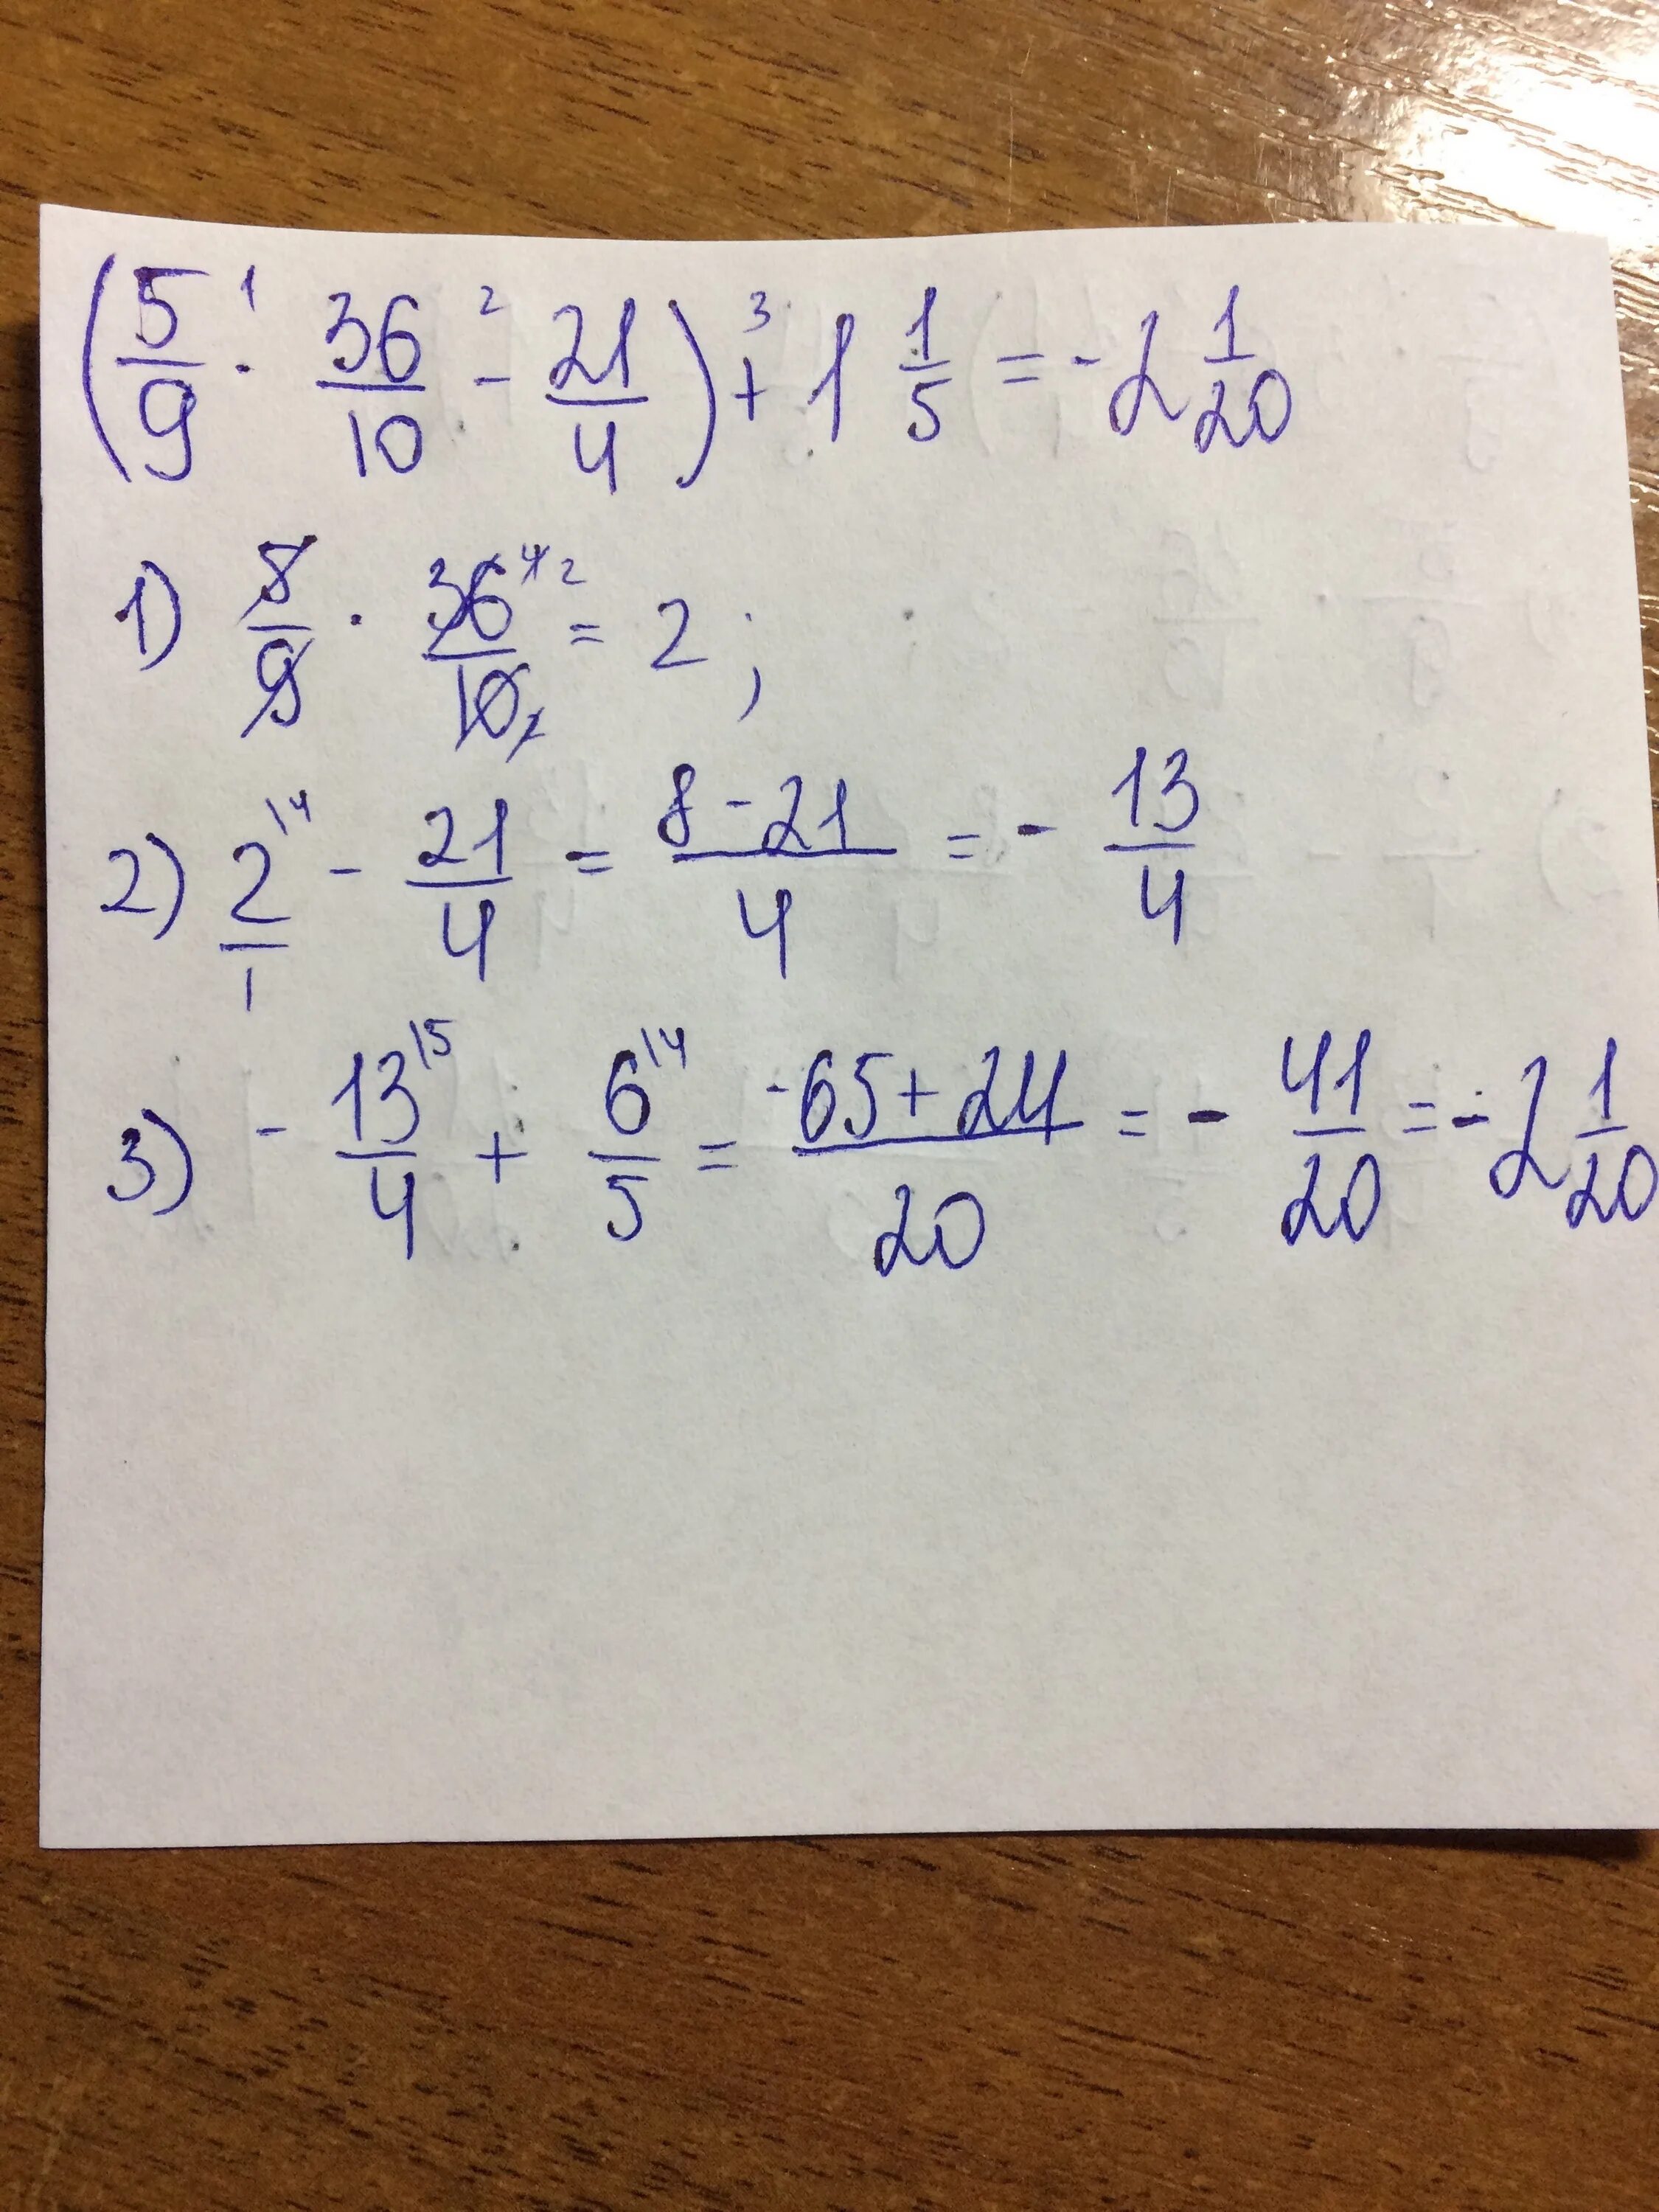 (5/9 ·¹ 36/10 -² 21/4) +³ 1 1/5 = -2 1/20
1) 5/9 · 36⁴ ²/10₂ = 2;
2) 2\4/1 - 21/4 = 8-21/4 = - 13/4
3) - 13\5/4 + 6\4/5 = -65+24/20 = - 41/20 = -2 1/20